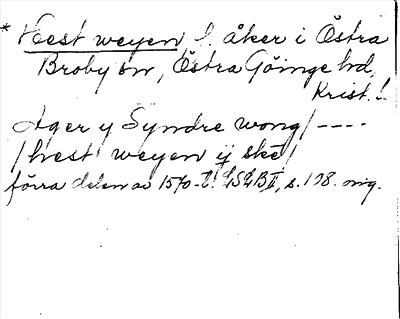 * Hest weyen l. åker i Östra
Broby sn, Östra Göinge hd,
Krist. l.
Ager y Syndre wong/ ----
/hest weyen ij ske/
förra delen av 1570-t. LSLB II, s. 198. mg.